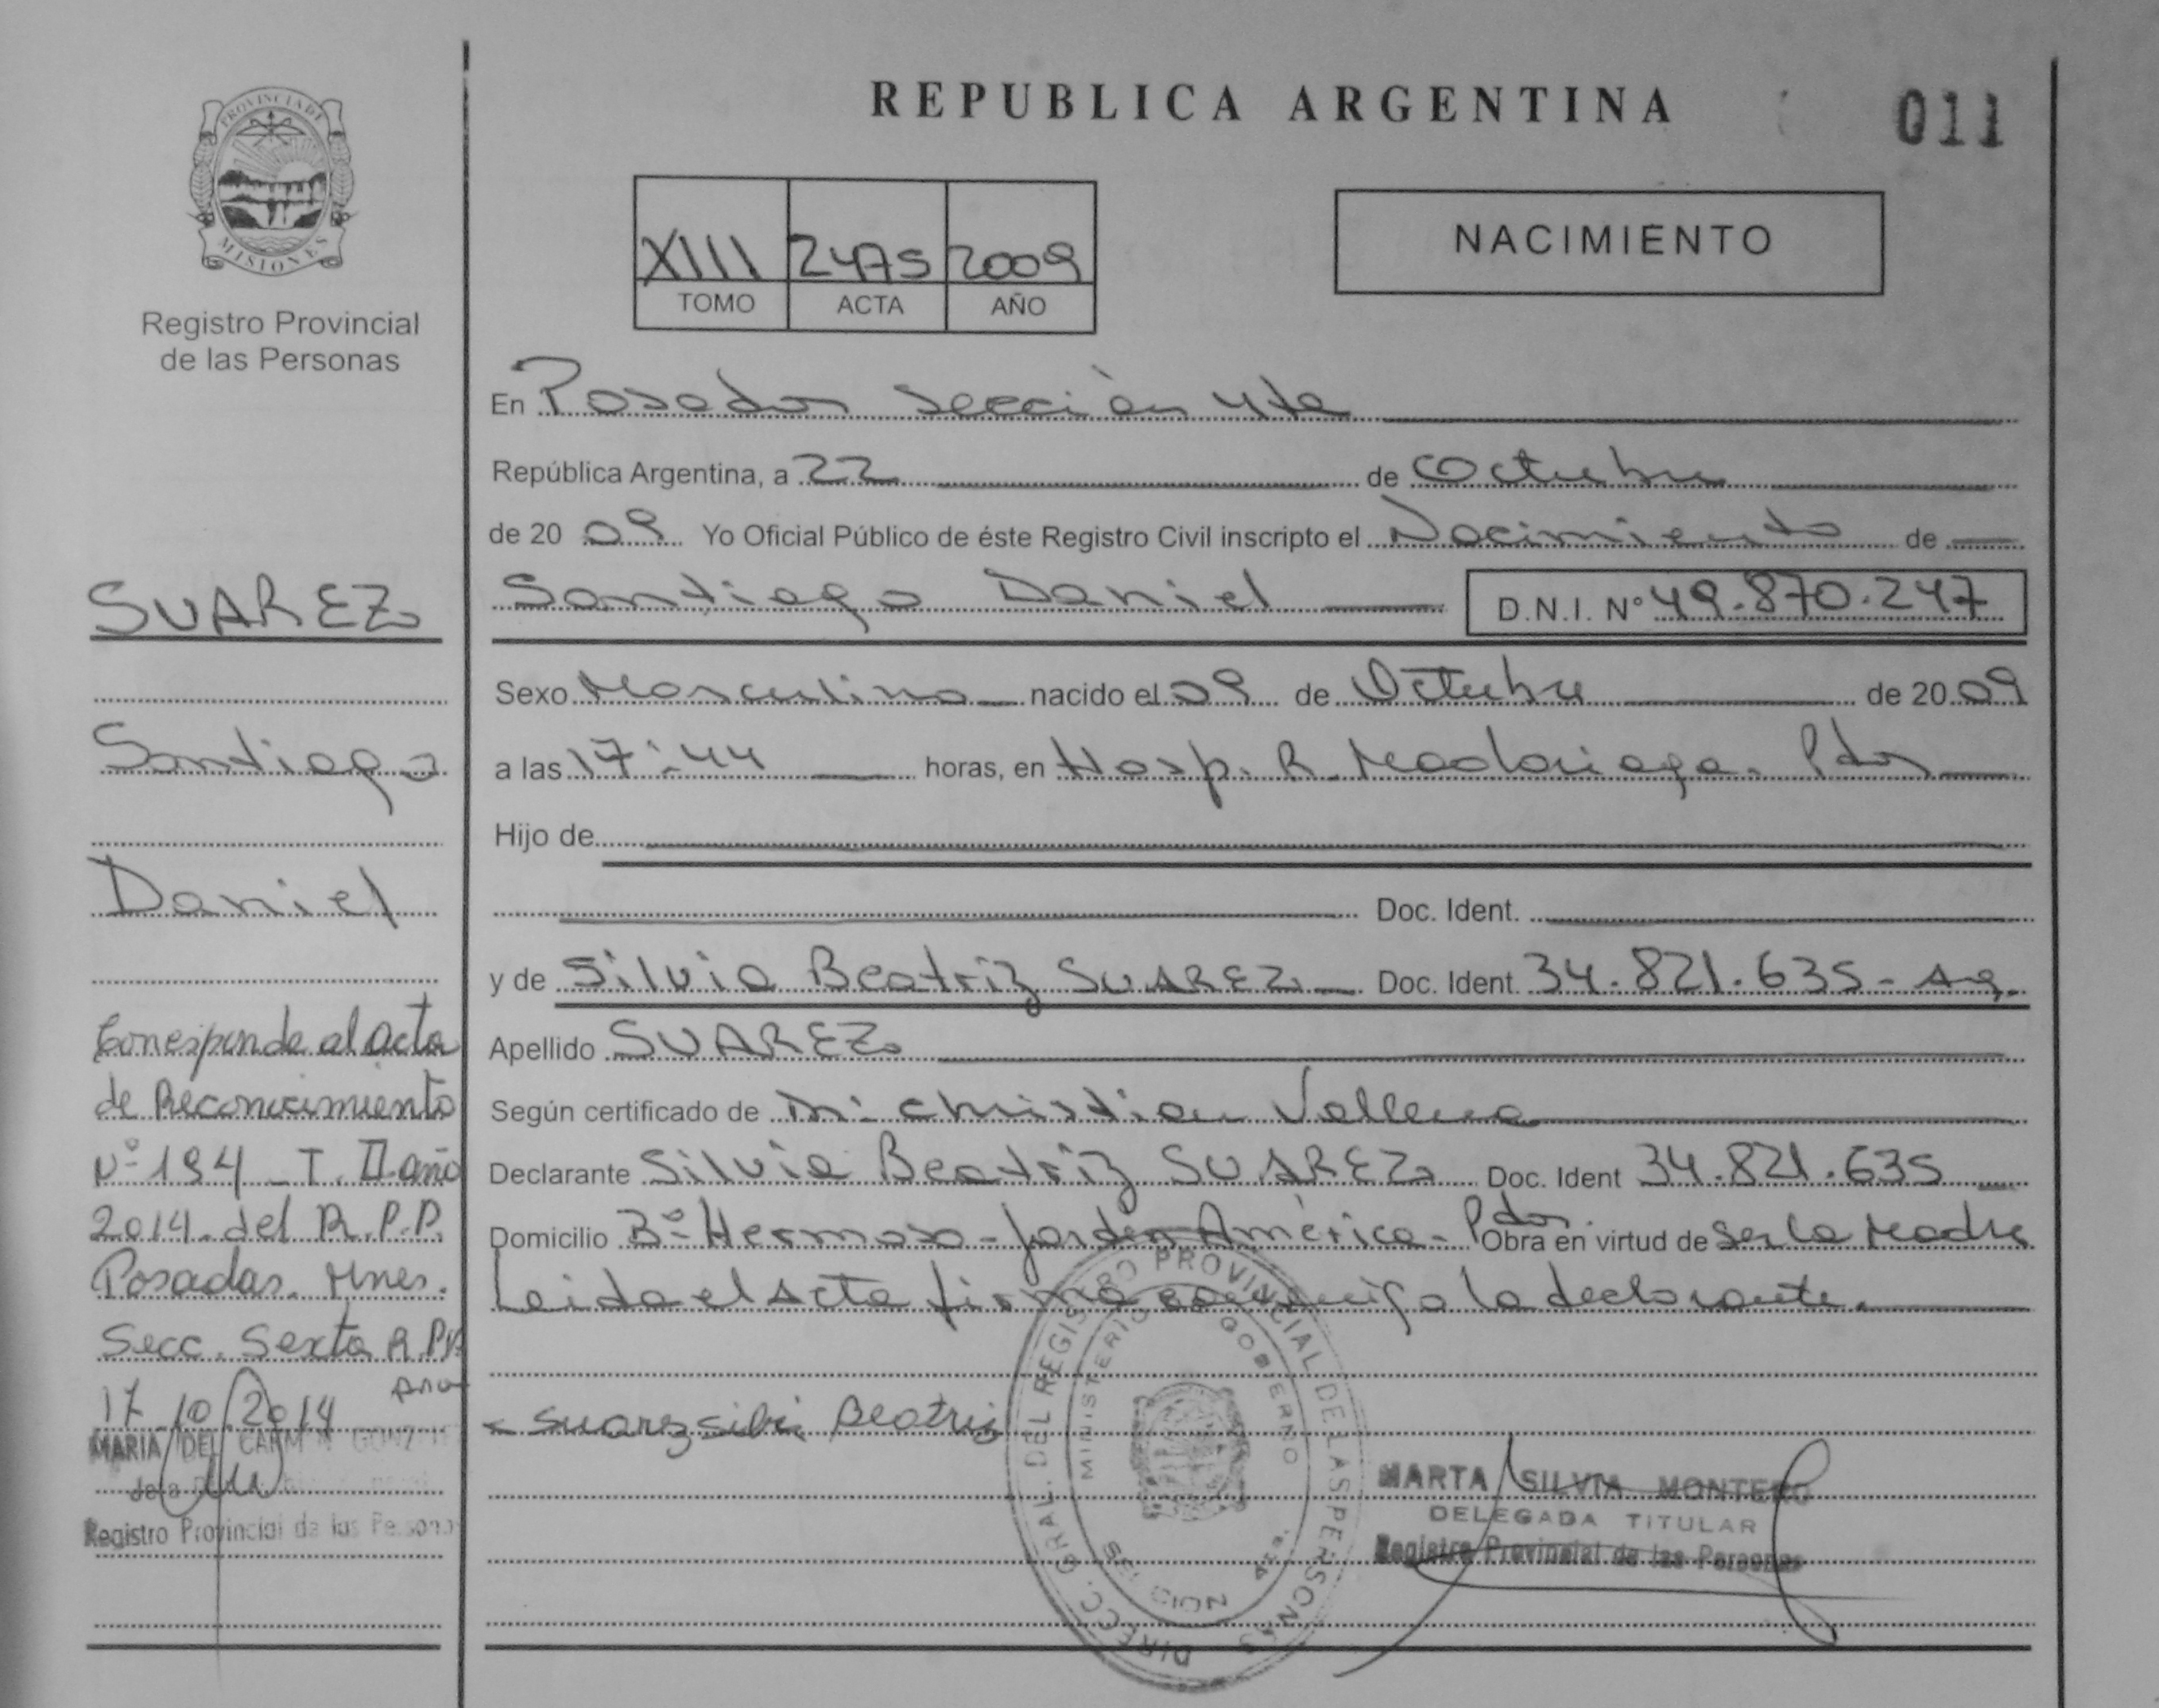 PROVINCIA DE
MISIONES
Registro Provincial
de las Personas
SUAREZ
Santiago
Daniel
Corresponde al acta
de Reconocimiento
Nº 194 _ T. II año
2014. del R.P.P.
Posadas. Mnes.
Secc. Sexta R.PP.
17 10 2014
MARIA DEL CARMEN
Registro Provincial de las Persona
REPUBLICA ARGENTINA
011
XIII 2475 2009
TOMO ACTA AÑO
NACIMIENTO
En Posadas Sección 4ta
República Argentina, a 22 de Octubre
de 20 09 Yo Oficial Público de éste Registro Civil inscripto el Nacimiento de
Santiago Daniel D.N.I. Nº 49.870.247
Sexo Masculino nacido el 09 de Octubre de 20 09
a las 17:44 horas, en Hosp. R. Madariaga. Pdas
Hijo de
Doc. Ident.
y de Silvia Beatriz SUAREZ Doc. Ident. 34.821.635 - Ag.
Apellido SUAREZ
Según certificado de Dr. Christian
Declarante Silvia Beatriz SUAREZ Doc. Ident 34.821.635
Domicilio Bº Hermoso - Jardín América - Pdas. Obra en virtud de ser la Madre
Leida el Acta firma conmigo la declarante.
Suarez Silvi Beatriz
DIRECC. GRAL. DEL REGISTRO PROVINCIAL DE LAS PERSONAS
MINISTERIO GOBIERNO
MARTA SILVIA MONTERO
DELEGADA TITULAR
Registro Provincial de las Personas